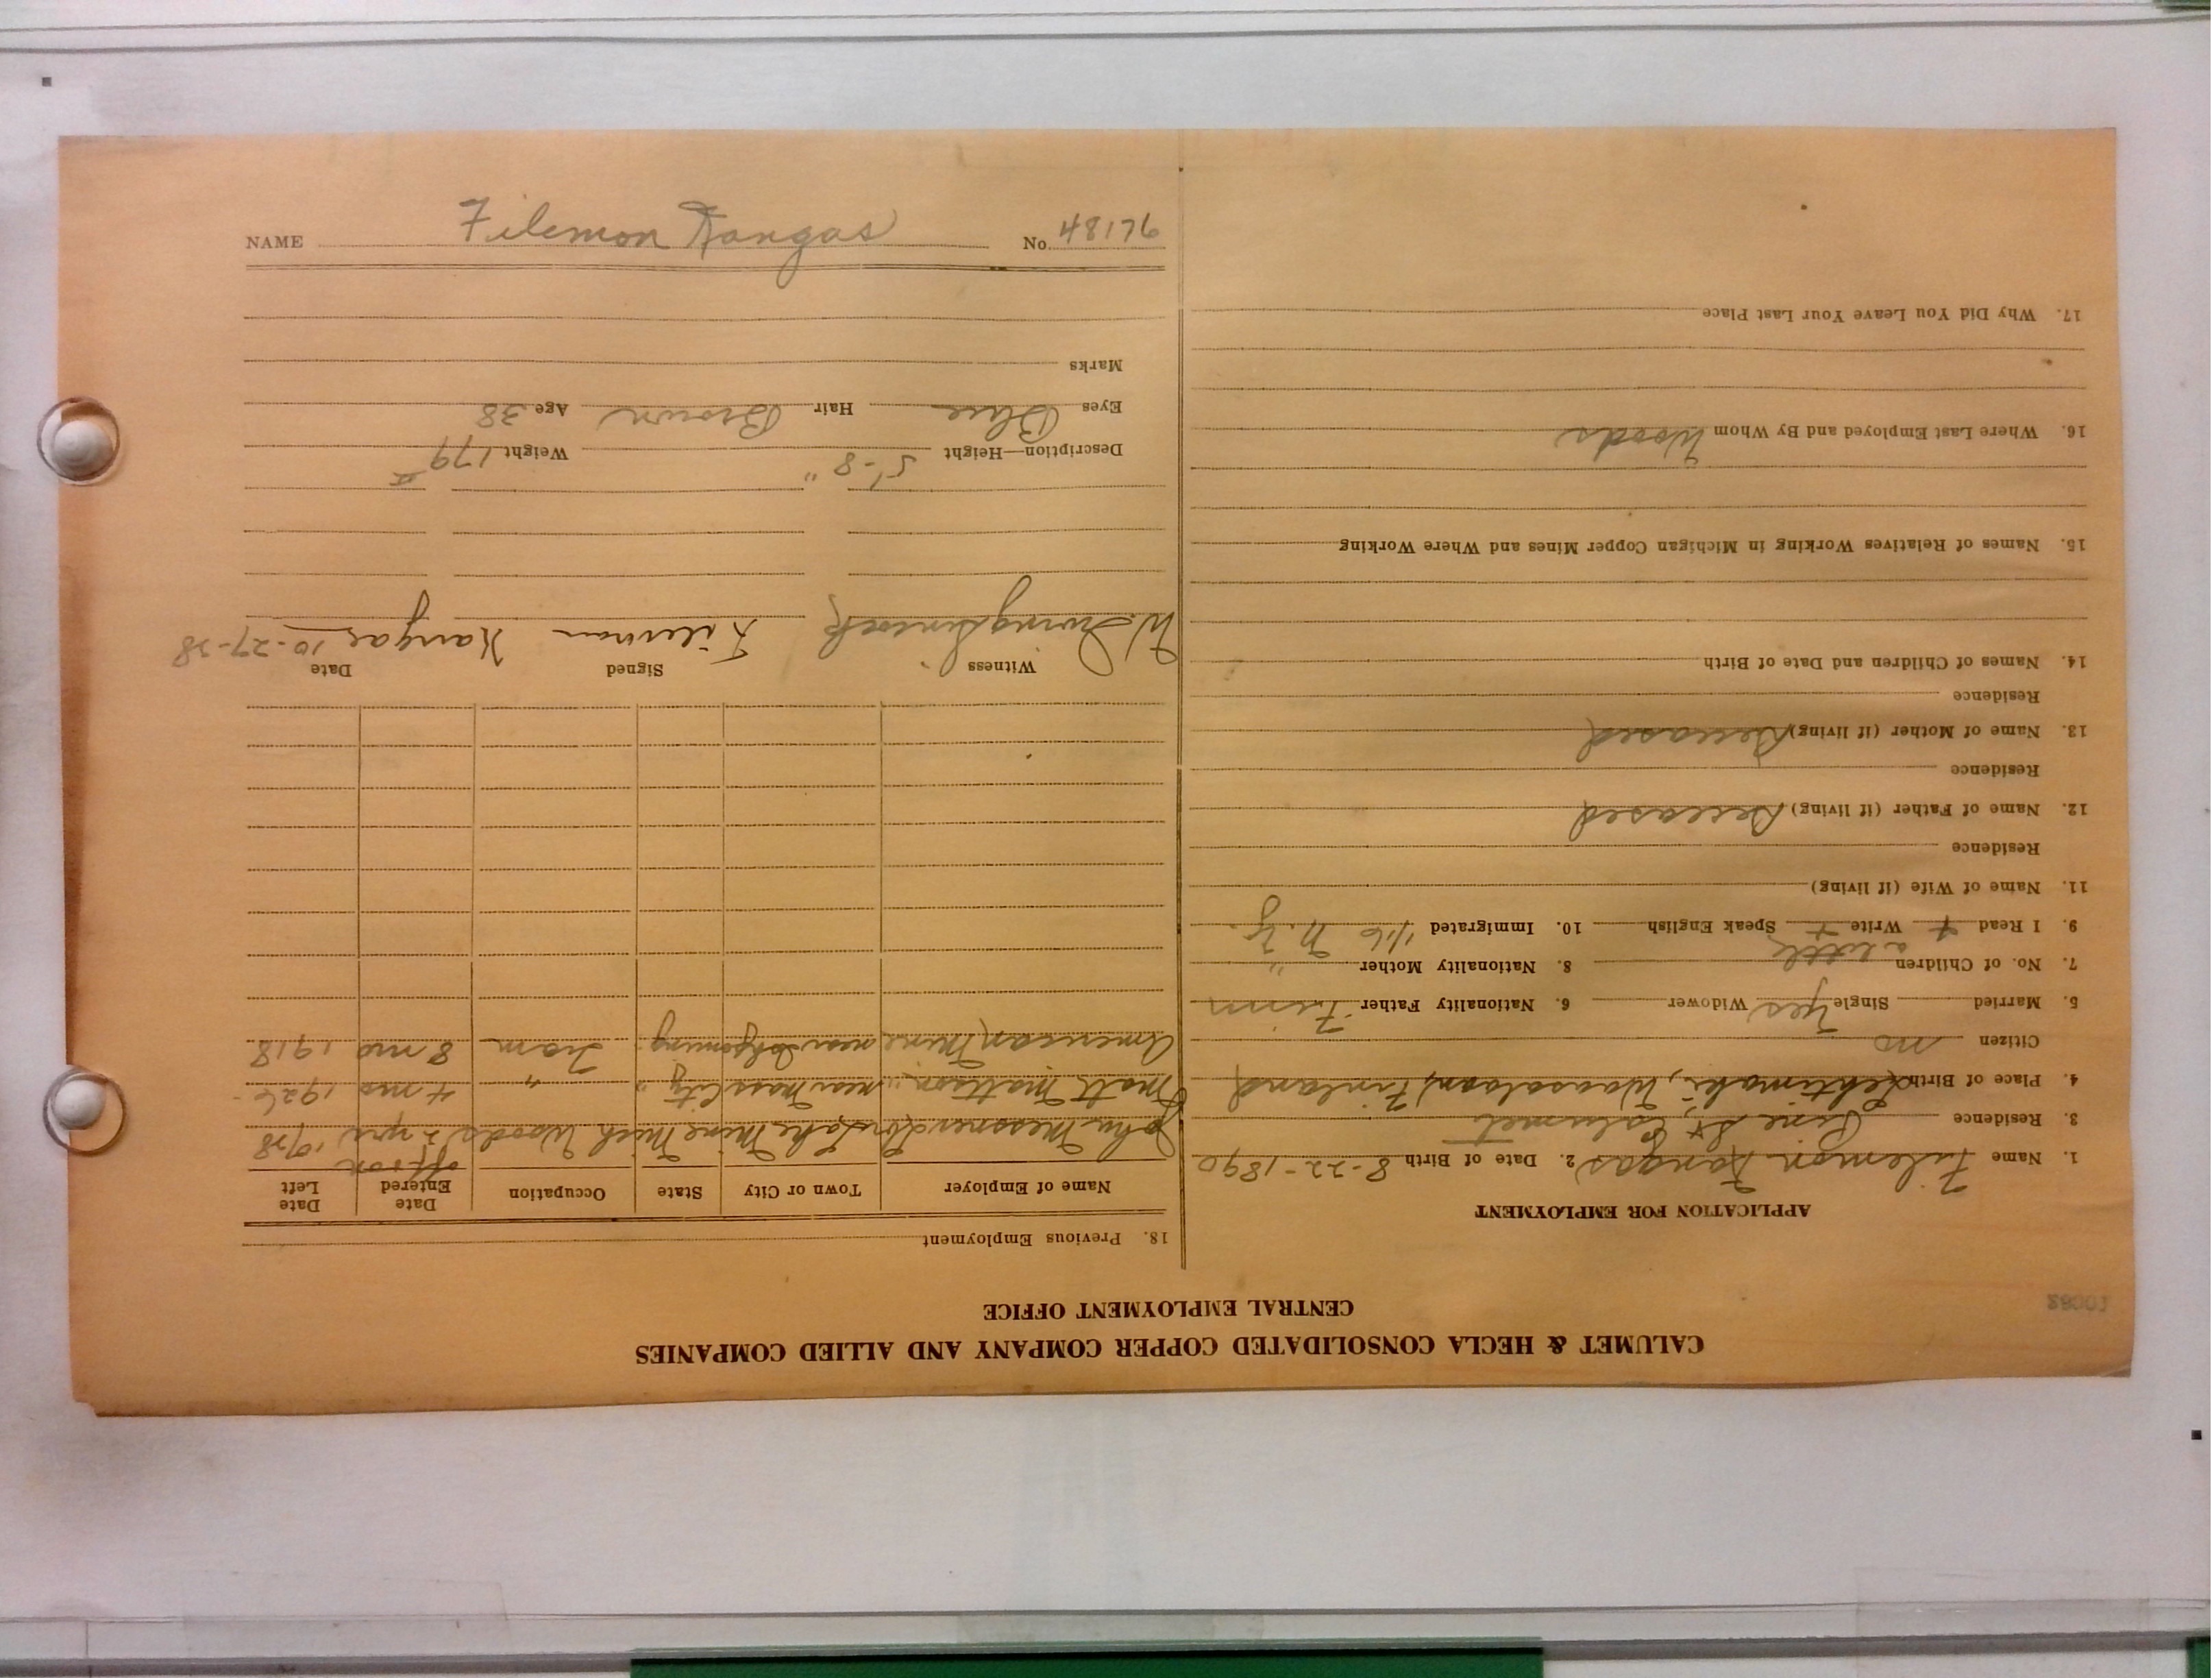 CALUMET & HECLA CONSOLIDATED COPPER COMPANY AND ALLIED COMPANIES
CENTRAL EMPLOYMENT OFFICE
APPLICATION FOR EMPLOYMENT
1. Name Filemon Kangas 2. Date of Birth 8-22-1890
3. Residence Pine St, Calumet
4. Place of Birth Lehtimaki, Waasalaani, Finland
Citizen no
5. Married Single Yes Widower 6. Nationality Father Finn
7. No. of Children 8. Nationality Mother "
a little
9. I Read + Write + Speak English 10. Immigrated 1/16 N.Y.
11. Name of Wife (if living)
Residence
12. Name of Father (if living) Deceased
Residence
13. Name of Mother (if living) Deceased
Residence
14. Names of Children and Date of Birth
15. Names of Relatives Working in Michigan Copper Mines and Where Working
16. Where Last Employed and By Whom Woods
17. Why Did You Leave Your Last Place
18. Previous Employment
Name of Employer Town or City State Occupation Date Entered Date Left
off + on
John Messner Lake Mine Mich Woods 2 yrs 10/28
Matt Mattson near Mass City " " 4 mo 1926
American Mine near Ishpeming Tram 8 mo 1918
Witness Signed Date
W. Irving Filemon Kangas 10-27-28
Description—Height 5'-8" Weight 179 #
Eyes Blue Hair Brown Age 38
Marks
NAME Filemon Kangas No. 48176